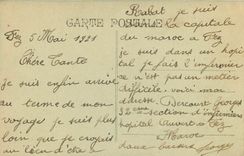 CARTE POSTALE
Fez 5 Mai 1921
Chère Tante
je suis enfin arrivé
au terme de mon
voyage je suis plus
loin que je croyais
Rabat je suis
la capitale
du maroc à Fez
je suis dans un hopi
tal je fais l'infirmier
ce n'est pas un metier
difficile. voici mon
adresse. Georges
32e section d'infirmiers
hopital
Maroc
doux baisers